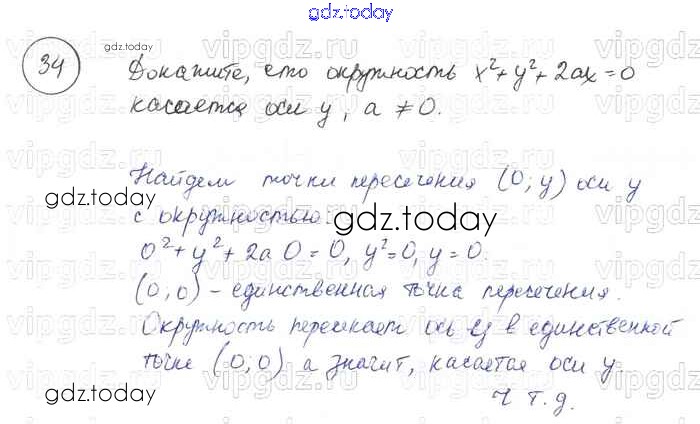 gdz.today
34
gdz.today
Докажите, что окружность x²+y²+2ax=0
касается оси y, a ≠ 0.
Найдем точки пересечения (0; y) оси y
gdz.today
с окружностью.
gdz.today
0²+y²+2a 0=0, y²=0, y=0.
(0,0) - единственная точка пересечения.
Окружность пересекает ось y в единственной
точке (0;0) а значит, касается оси y.
gdz.today
gdz.today
Ч.т.д.
vipgdz.ru